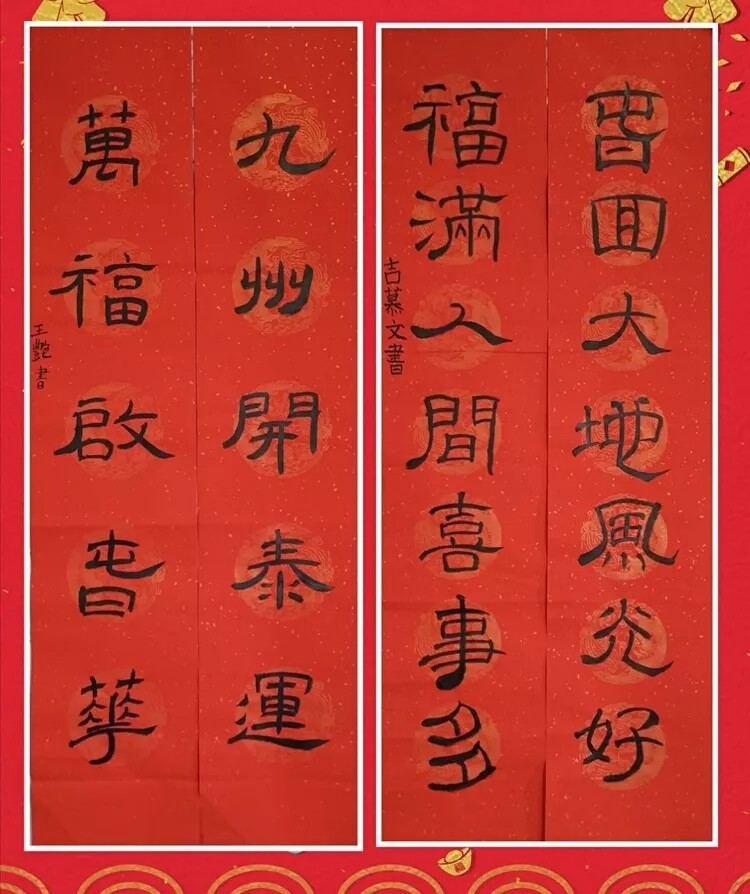 春回大地風光好
福滿人間喜事多
吉慕文書
九州開泰運
萬福啟春華
王艷書